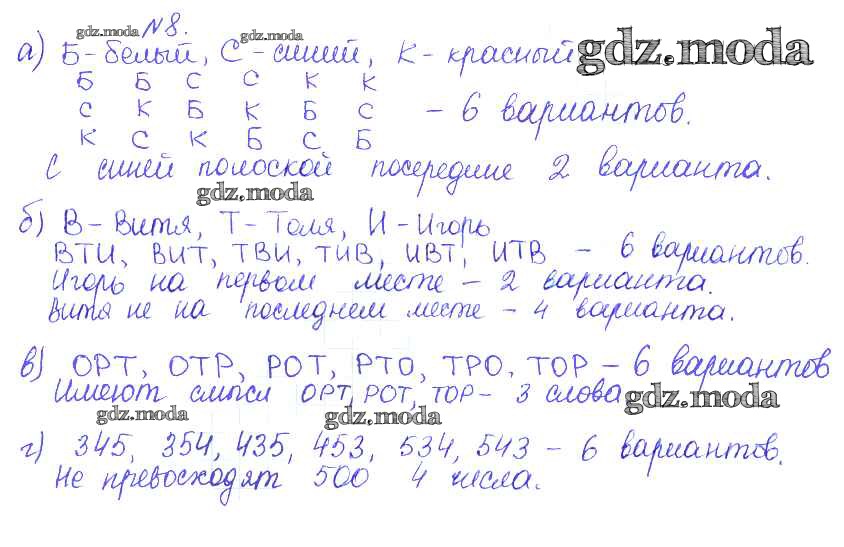 gdz.moda №8. gdz.moda
а) Б-белый, С-синий, К-красный gdz.moda
Б Б С С К К
С К Б К Б С - 6 вариантов.
К С К Б С Б
С синей полоской посередине 2 варианта.
gdz.moda
б) В-Витя, Т-Толя, И-Игорь
ВТИ, ВИТ, ТВИ, ТИВ, ИВТ, ИТВ - 6 вариантов.
Игорь на первом месте - 2 варианта.
Витя не на последнем месте - 4 варианта.
в) ОРТ, ОТР, РОТ, РТО, ТРО, ТОР - 6 вариантов
Имеют смысл ОРТ, РОТ, ТОР - 3 слова gdz.moda
gdz.moda gdz.moda
г) 345, 354, 435, 453, 534, 543 - 6 вариантов.
Не превосходят 500 4 числа.